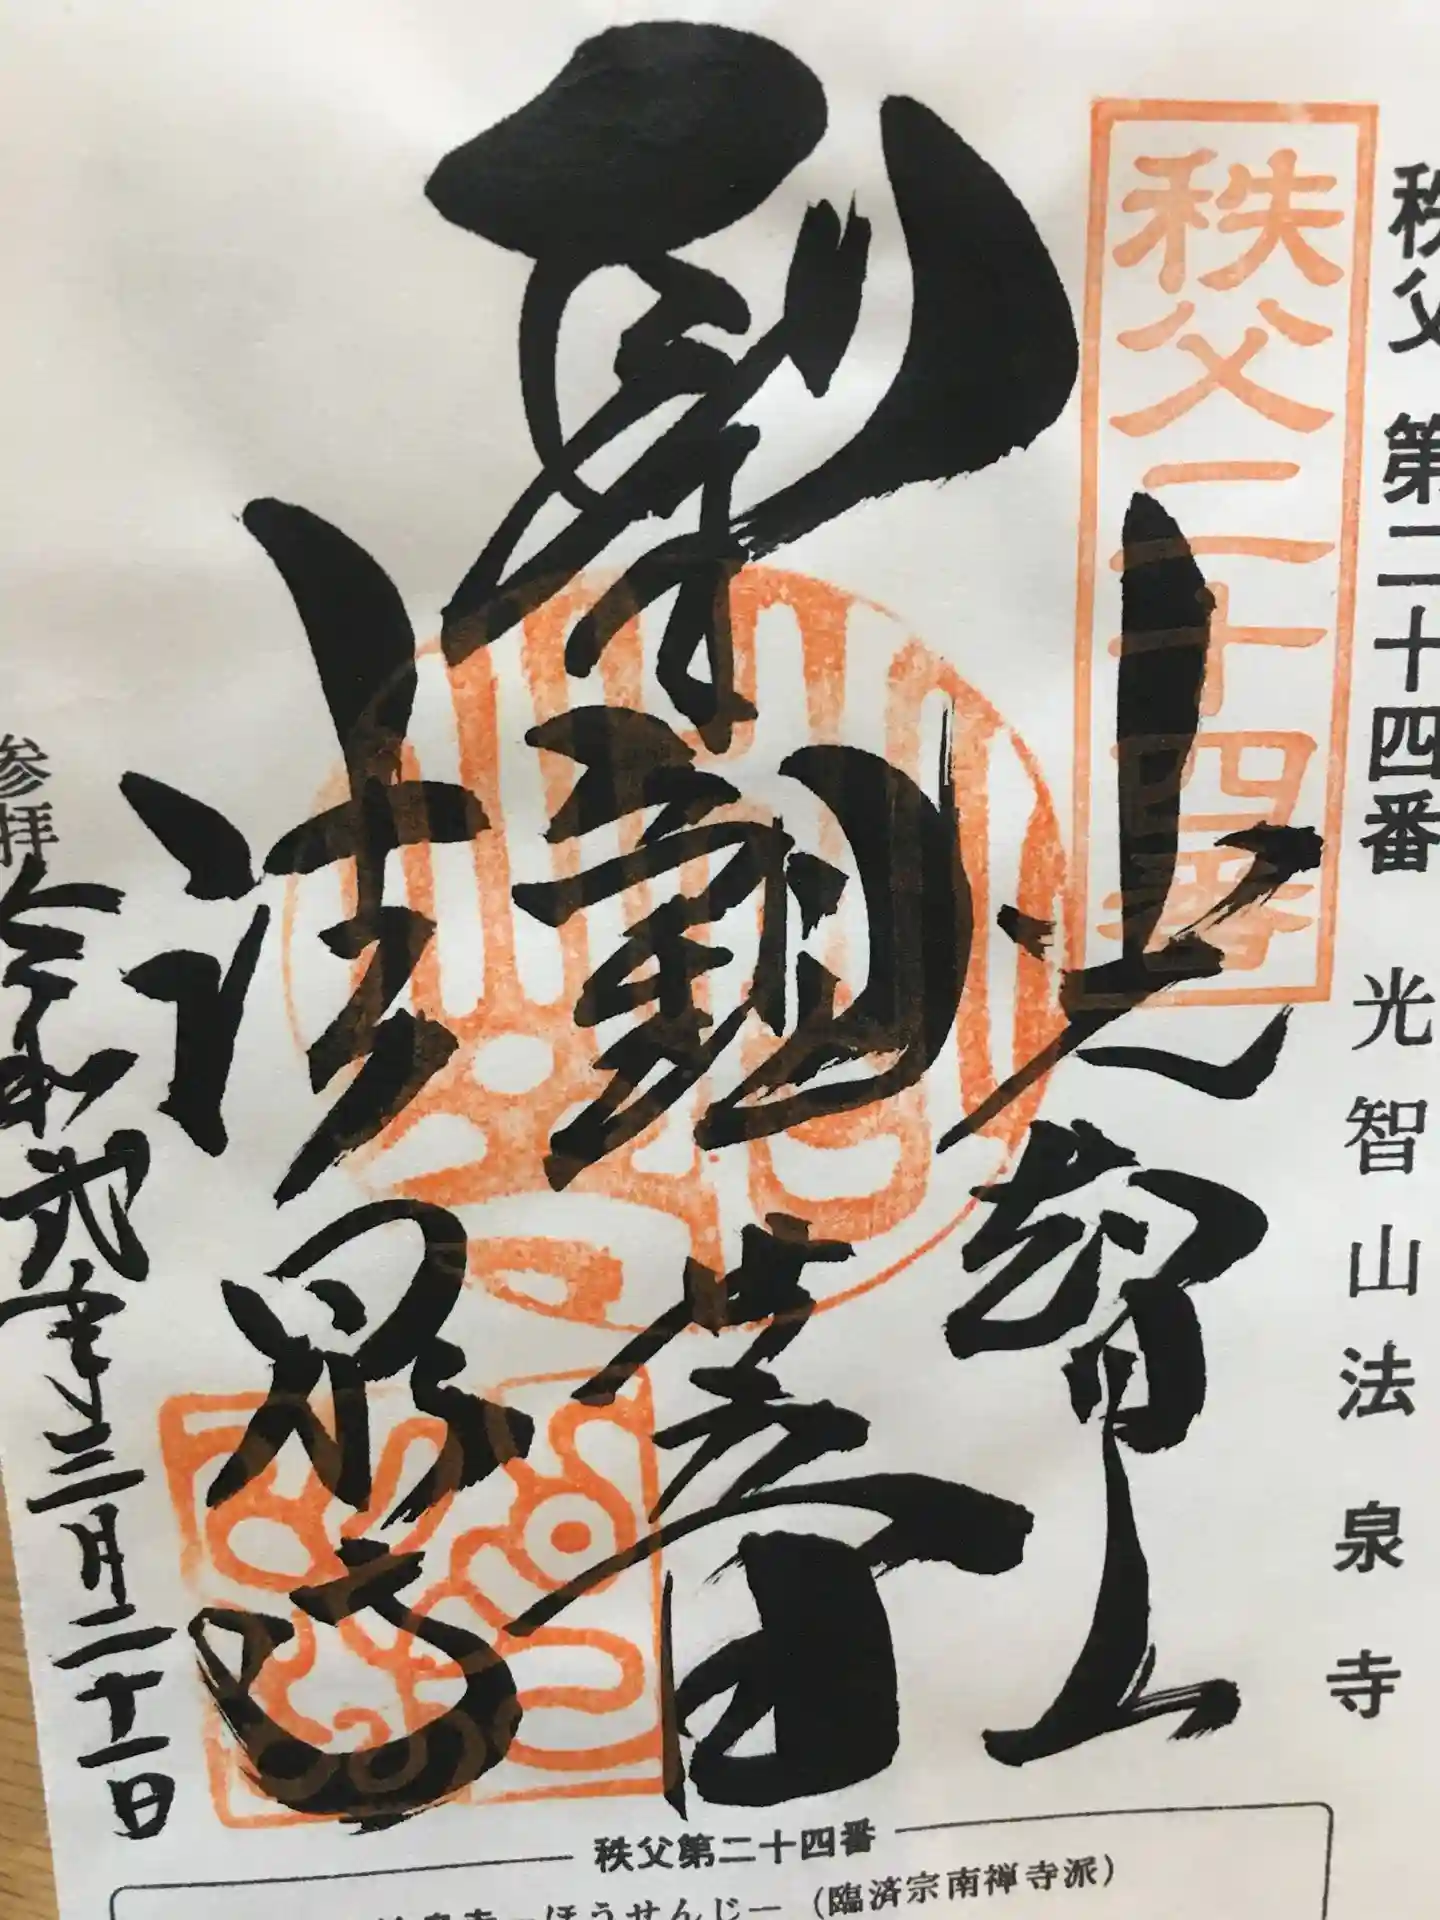 秩父 第二十四番 光智山法泉寺
秩父二十四番
光智山
聖観世音
法泉寺
参拝 令和弐年三月二十一日
秩父第二十四番
泉寺-ほうせんじ-(臨済宗南禅寺派)